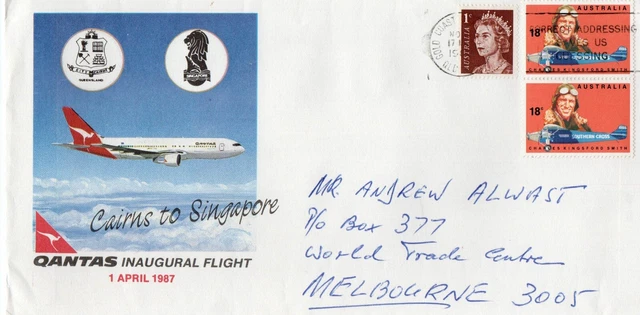 CITY CAIRNS
QUEENSLAND
SINGAPORE
QANTAS
Cairns to Singapore
QANTAS INAUGURAL FLIGHT
1 APRIL 1987
GOLD COAST
17
QLD
1c
AUSTRALIA
AUSTRALIA
18c
CORRECT ADDRESSING
US
CHARLES KINGSFORD SMITH
AUSTRALIA
18c
SOUTHERN CROSS
CHARLES KINGSFORD SMITH
MR. ANDREW ALWAST
P/o Box 377
World Trade Centre
MELBOURNE 3005